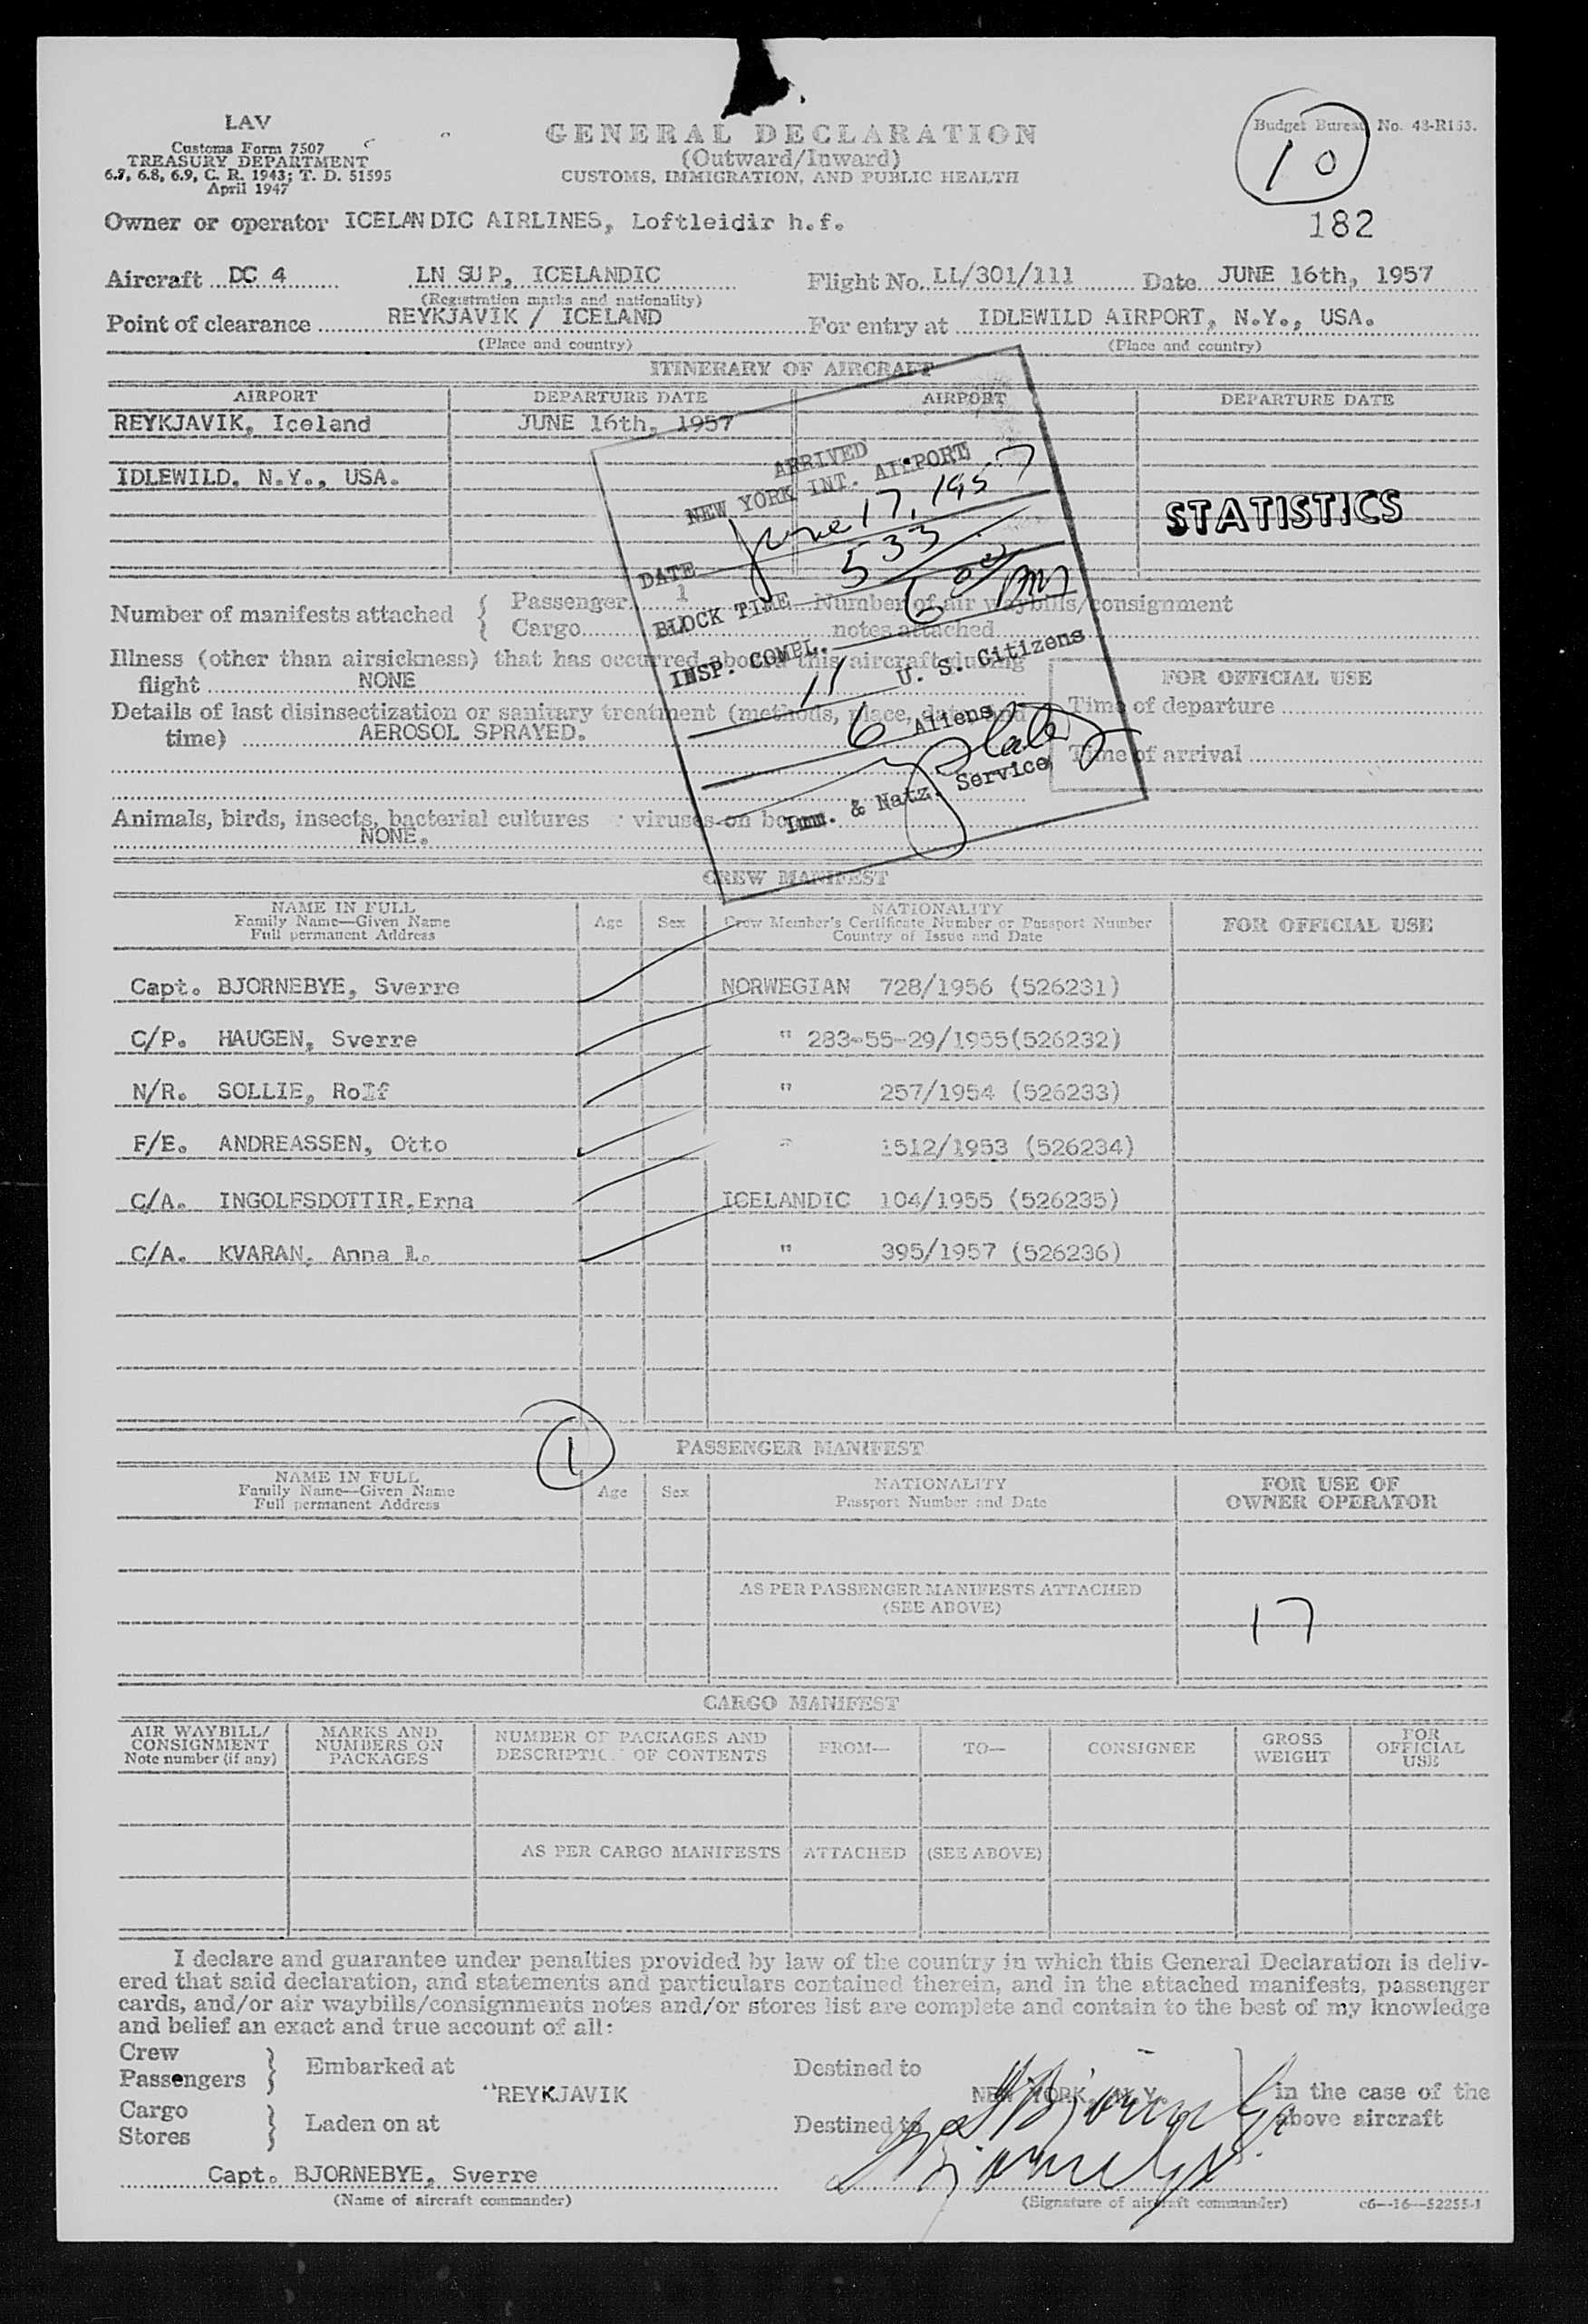 LAV
Customs Form 7507
TREASURY DEPARTMENT
6.7, 6.8, 6.9, C. R. 1943; T. D. 51595
April 1947
GENERAL DECLARATION
(Outward/Inward)
CUSTOMS, IMMIGRATION, AND PUBLIC HEALTH
Budget Bureau No. 43-R153.
10
182
Owner or operator ICELANDIC AIRLINES, Loftleidir h.f.
Aircraft DC 4 LN SUP, ICELANDIC Flight No. LL/301/111 Date JUNE 16th, 1957
(Registration marks and nationality)
Point of clearance REYKJAVIK / ICELAND For entry at IDLEWILD AIRPORT, N.Y., USA.
(Place and country) (Place and country)
ITINERARY OF AIRCRAFT
AIRPORT DEPARTURE DATE AIRPORT DEPARTURE DATE
REYKJAVIK, Iceland JUNE 16th, 1957
IDLEWILD, N.Y., USA.
STATISTICS
ARRIVED
NEW YORK INT. AIRPORT
DATE June 17, 1957
BLOCK TIME 533
INSP. COMPL. 600 AM
11 U. S. Citizens
6 Aliens
Imm. & Natz. Service
Number of manifests attached { Passenger 1 Number of air waybills/consignment
Cargo notes attached
Illness (other than airsickness) that has occurred aboard this aircraft during
flight NONE
Details of last disinsectization or sanitary treatment (methods, place, date, and
time) AEROSOL SPRAYED.
FOR OFFICIAL USE
Time of departure
Time of arrival
Animals, birds, insects, bacterial cultures r viruses on
NONE.
CREW MANIFEST
NAME IN FULL
Family Name—Given Name
Full permanent Address
Age Sex
NATIONALITY
Crew Member's Certificate Number or Passport Number
Country of Issue and Date
FOR OFFICIAL USE
Capt. BJORNEBYE, Sverre NORWEGIAN 728/1956 (526231)
C/P. HAUGEN, Sverre " 283-55-29/1955(526232)
N/R. SOLLIE, Rolf " 257/1954 (526233)
F/E. ANDREASSEN, Otto " 1512/1953 (526234)
C/A. INGOLFSDOTTIR,Erna ICELANDIC 104/1955 (526235)
C/A. KVARAN, Anna " 395/1957 (526236)
1
PASSENGER MANIFEST
NAME IN FULL
Family Name—Given Name
Full permanent Address
Age Sex
NATIONALITY
Passport Number and Date
FOR USE OF
OWNER OPERATOR
AS PER PASSENGER MANIFESTS ATTACHED
(SEE ABOVE)
17
CARGO MANIFEST
AIR WAYBILL/
CONSIGNMENT
Note number (if any)
MARKS AND
NUMBERS ON
PACKAGES
NUMBER OF PACKAGES AND
DESCRIPTIC OF CONTENTS
FROM— TO— CONSIGNEE
GROSS
WEIGHT
FOR
OFFICIAL
USE
AS PER CARGO MANIFESTS ATTACHED (SEE ABOVE)
I declare and guarantee under penalties provided by law of the country in which this General Declaration is deliv-
ered that said declaration, and statements and particulars contained therein, and in the attached manifests, passenger
cards, and/or air waybills/consignments notes and/or stores list are complete and contain to the best of my knowledge
and belief an exact and true account of all:
Crew
Passengers } Embarked at Destined to
"REYKJAVIK NEW YORK, N.Y. in the case of the
Cargo
Stores } Laden on at Destined to above aircraft
Capt. BJORNEBYE, Sverre
(Name of aircraft commander) (Signature of aircraft commander) c6—16—52255-1